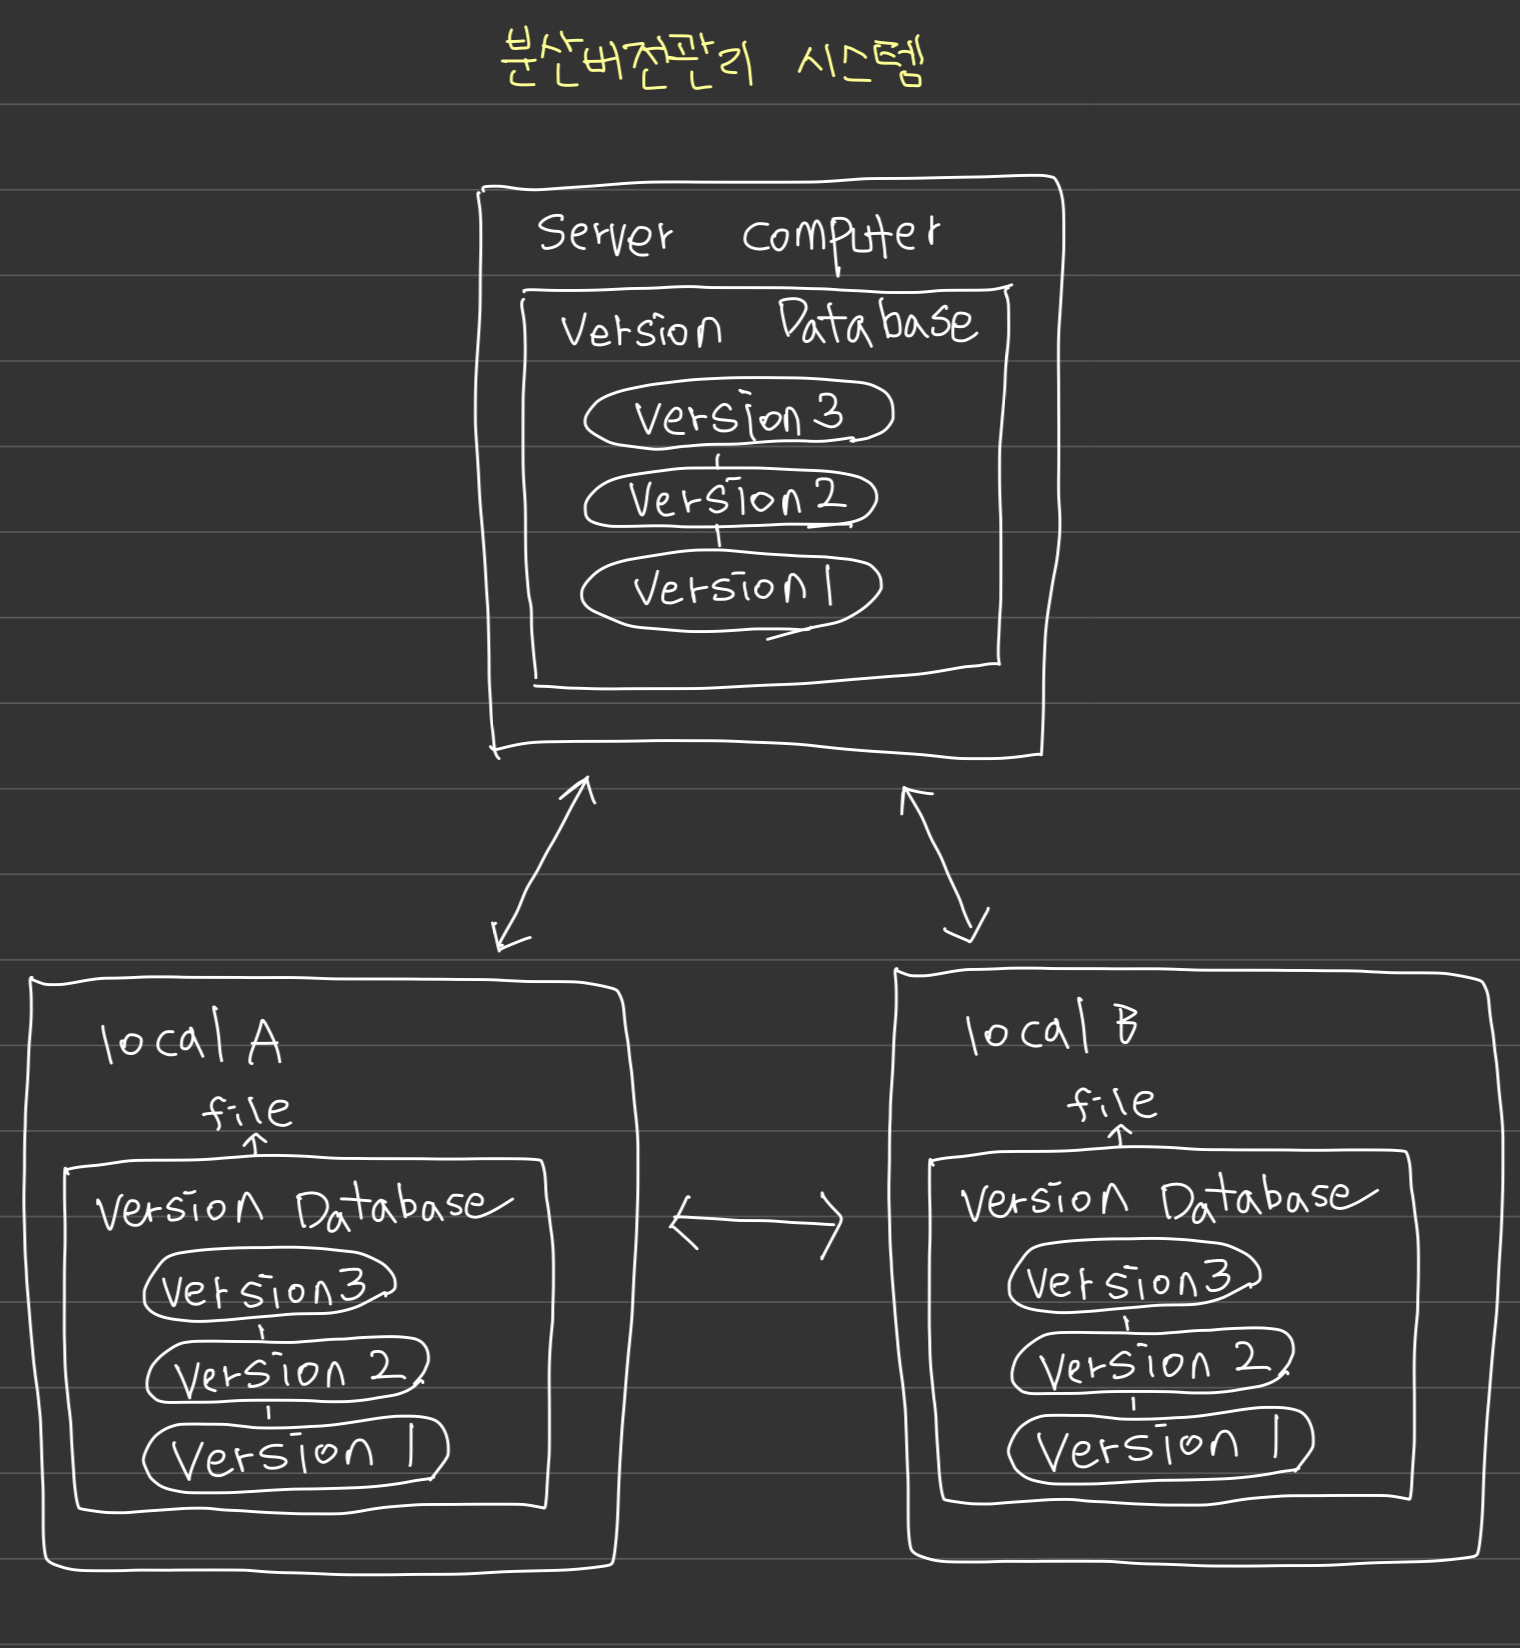 분산버전관리 시스템
Server computer
Version Database
Version 3
Version 2
Version 1
local A
file
Version Database
Version 3
Version 2
Version 1
local B
file
Version Database
Version 3
Version 2
Version 1